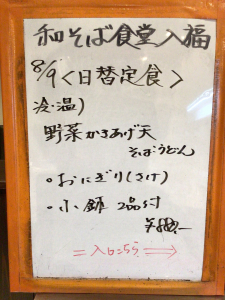 和そば食堂 入福
8/9 <日替定食>
冷・温)
野菜かきあげ天
そばうどん
・おにぎり(さけ)
・小鉢 2品付
入口こちら